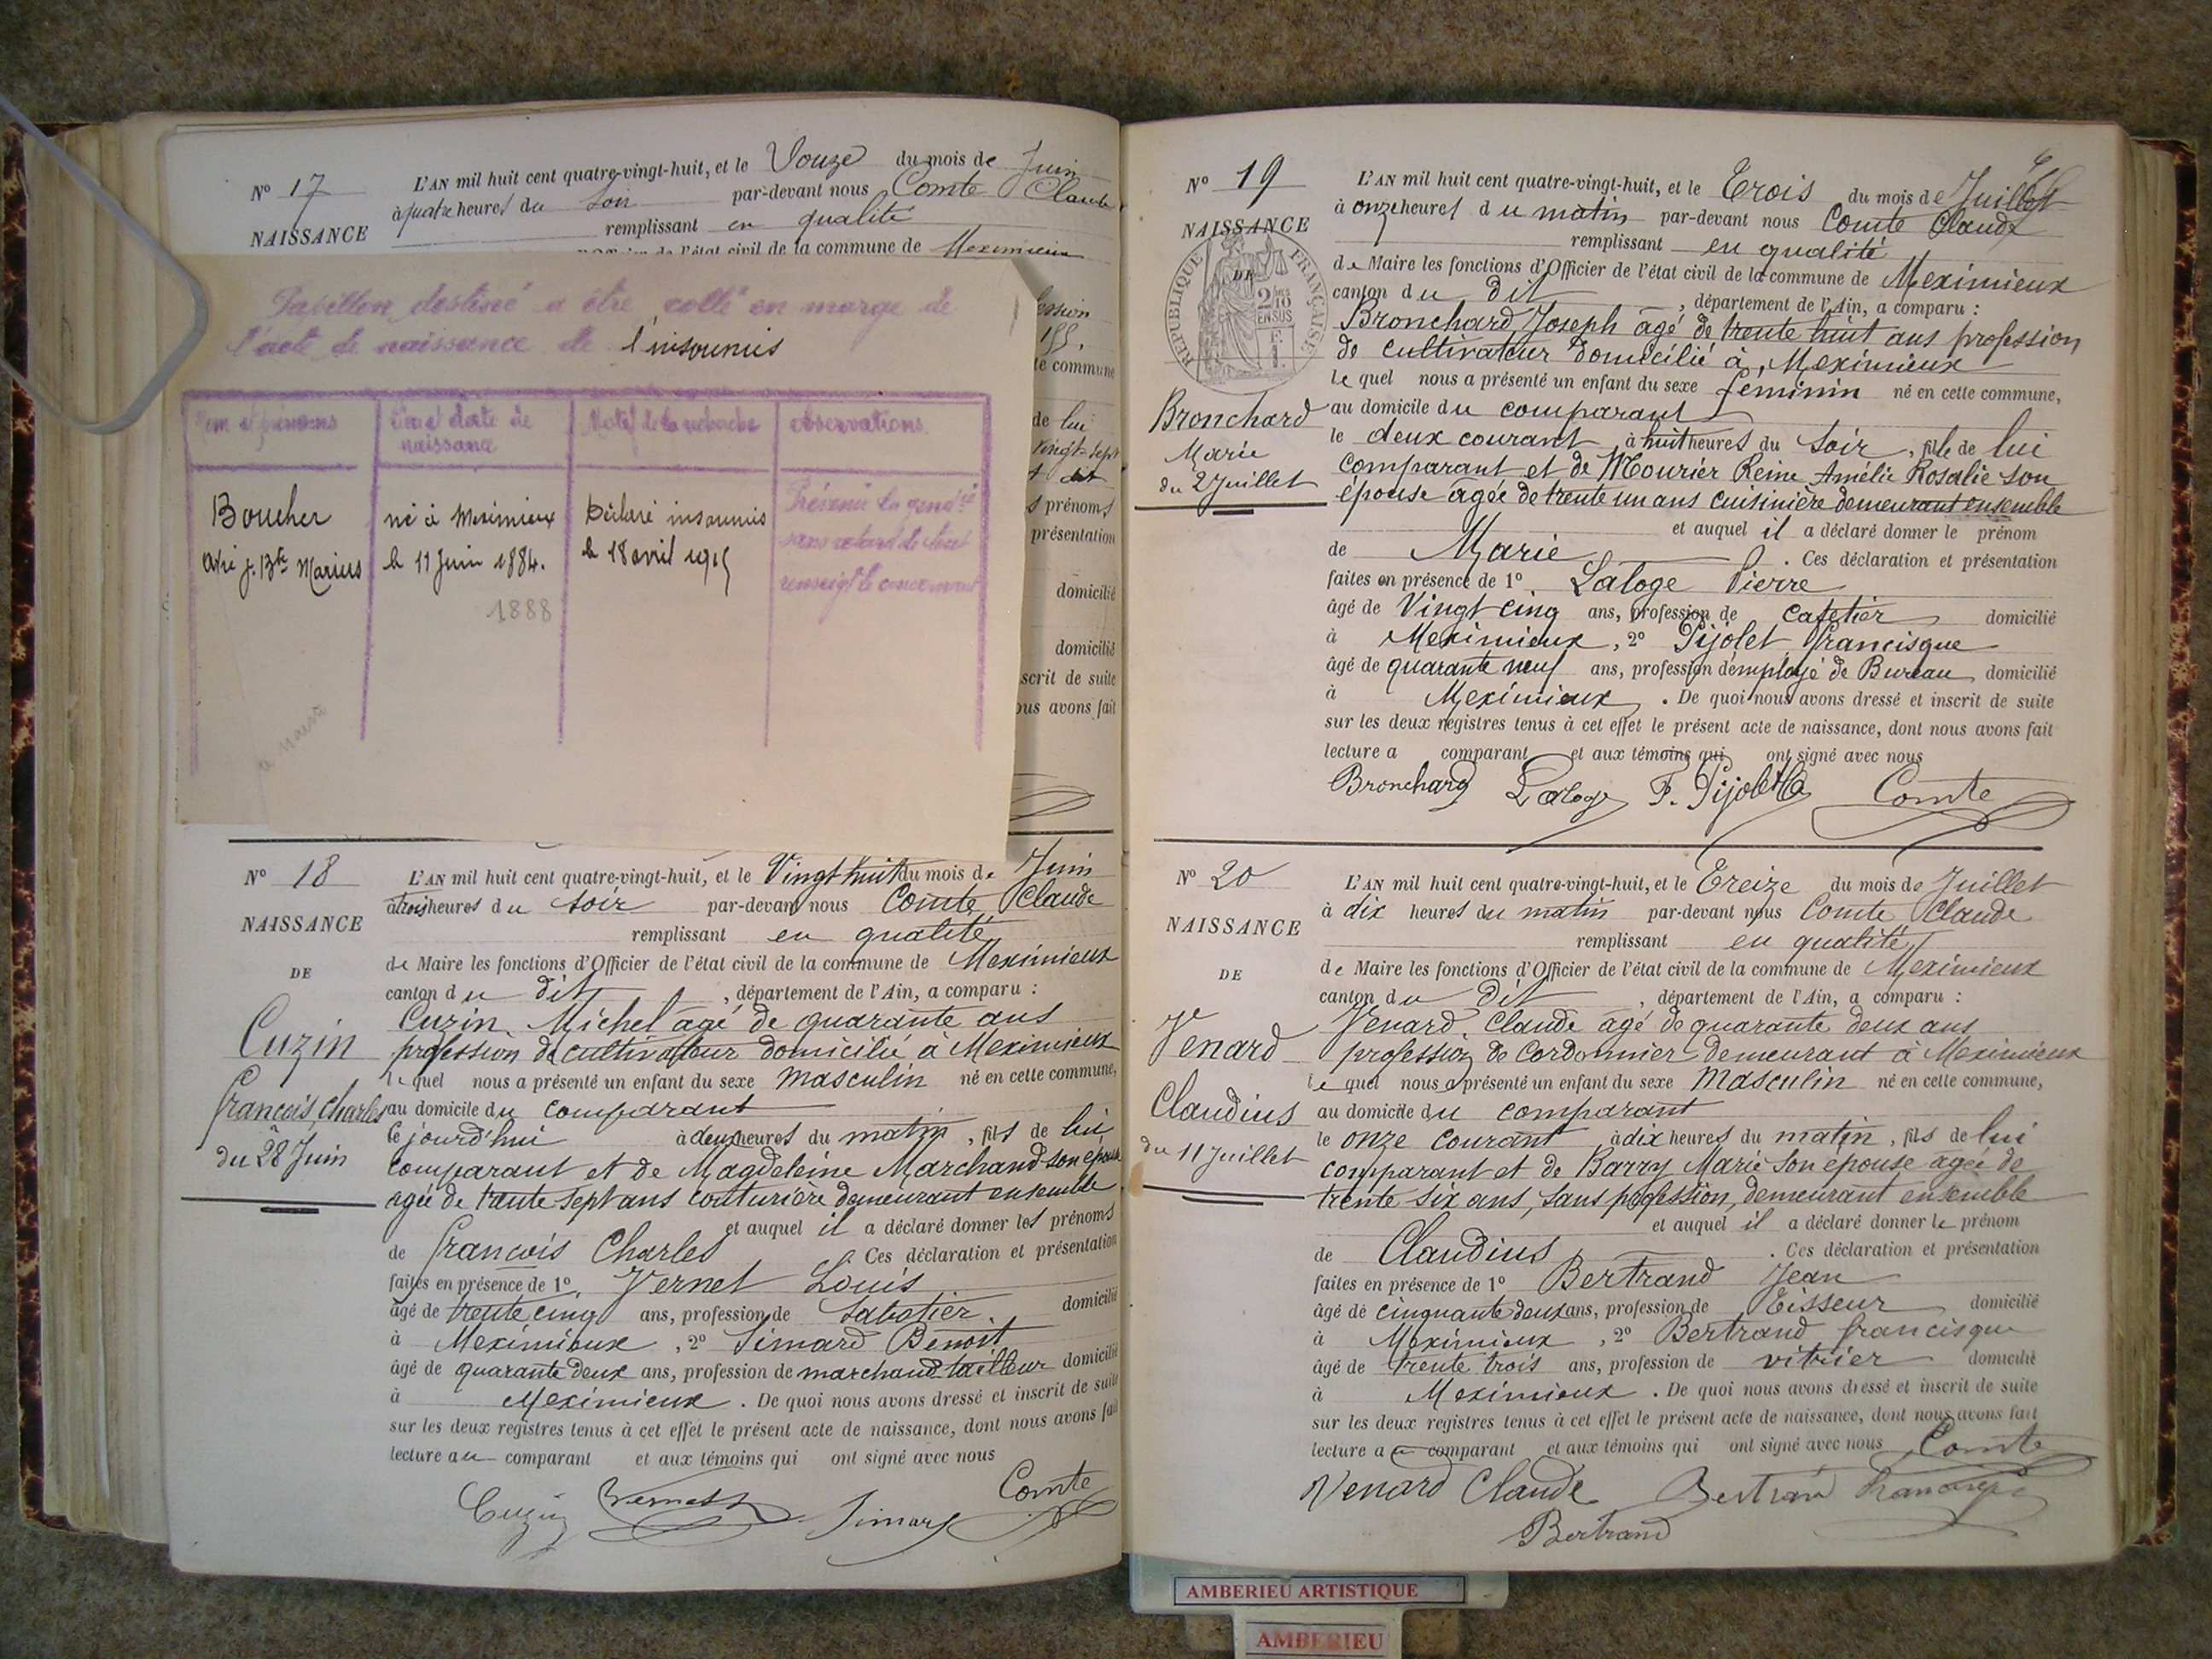 N° 17
NAISSANCE
L'AN mil huit cent quatre-vingt-huit, et le Douze du mois de Juin
à quatre heures du Soir par-devant nous Comte Claude
remplissant en qualité
de l'état civil de la commune de Meximieux
Papillon destiné a être collé en marge de
l'acte de naissance de l'insoumis
Nom et prénoms
Lieu et date de
naissance
Motif de la recherche
observations
Boucher
J. Bte Marius
né à Meximieux
le 11 Juin 1884.
1888
Déclaré insoumis
le 18 avril 1915
Prévenir la gendie
sans retard de tout
renseigt le concernant
ession
le commune
de lui
vingt-sept
s prénoms
présentation
domicilié
domicilié
scrit de suite
ous avons fait
N° 18
NAISSANCE
DE
Cuzin
François, Charles
du 28 Juin
L'AN mil huit cent quatre-vingt-huit, et le Vingt huit du mois de Juin
à trois heures du soir par-devant nous Comte Claude
remplissant en qualité
de Maire les fonctions d'Officier de l'état civil de la commune de Meximieux
canton du dit, département de l'Ain, a comparu :
Cuzin, Michel agé de quarante ans
profession de cultivateur domicilié à Meximieux
lequel nous a présenté un enfant du sexe masculin né en cette commune,
au domicile du comparant
le jourd'hui à deux heures du matin, fils de lui
comparant et de Magdeleine Marchand son épouse
agée de trente sept ans couturière demeurant ensemble
et auquel il a déclaré donner les prénoms
de François Charles Ces déclaration et présentation
faites en présence de 1° Vernet Louis
âgé de trente cinq ans, profession de Sabotier. domicilié
à Meximieux, 2° Simard Benoit
âgé de quarante deux ans, profession de marchand tailleur domicilié
à Meximieux. De quoi nous avons dressé et inscrit de suite
sur les deux registres tenus à cet effet le présent acte de naissance, dont nous avons fait
lecture au comparant et aux témoins qui ont signé avec nous
Cuzin Vernet Simard Comte
N° 19
NAISSANCE
DE
RÉPUBLIQUE FRANÇAISE
2/10 EN SUS
Bronchard
Marie
du 2 Juillet
L'AN mil huit cent quatre-vingt-huit, et le Trois du mois de Juillet
à onze heures du matin par-devant nous Comte Claude
remplissant en qualité
de Maire les fonctions d'Officier de l'état civil de la commune de Meximieux
canton du dit, département de l'Ain, a comparu :
Bronchard, Joseph âgé de trente huit ans profession
de cultivateur domicilié à, Meximieux
lequel nous a présenté un enfant du sexe feminin né en cette commune,
au domicile du comparant
le deux courant, à huit heures du soir, fille de lui
comparant et de Mourier Reine Amélie Rosalie son
épouse agée de trente un ans cuisinière demeurant ensemble
et auquel il a déclaré donner le prénom
de Marie. Ces déclaration et présentation
faites en présence de 1° Laloge Pierre
âgé de Vingt cinq ans, profession de Cafetier domicilié
à Meximieux, 2° Pijolet Francisque
âgé de quarante neuf ans, profession d'employé de Bureau domicilié
à Meximieux. De quoi nous avons dressé et inscrit de suite
sur les deux registres tenus à cet effet le présent acte de naissance, dont nous avons fait
lecture a comparant et aux témoins qui ont signé avec nous
Bronchard Laloge F. Pijolet Comte
N° 20
NAISSANCE
DE
Venard
Claudius
du 11 Juillet
L'AN mil huit cent quatre-vingt-huit, et le Treize du mois de Juillet
à dix heures du matin par-devant nous Comte Claude
remplissant en qualité
de Maire les fonctions d'Officier de l'état civil de la commune de Meximieux
canton du Dit, département de l'Ain, a comparu :
Venard, Claude agé de quarante deux ans
profession de Cordonnier demeurant à Meximieux
lequel nous a présenté un enfant du sexe Masculin né en cette commune,
au domicile du comparant
le onze courant, à dix heures du matin, fils de lui
comparant et de Barry Marie son épouse agée de
trente six ans, sans profession, demeurant ensemble
et auquel il a déclaré donner le prénom
de Claudius. Ces déclaration et présentation
faites en présence de 1° Bertrand Jean
âgé de cinquante deux ans, profession de Tisseur domicilié
à Meximieux, 2° Bertrand francisque
âgé de trente trois ans, profession de vitrier domicilié
à Meximieux. De quoi nous avons dressé et inscrit de suite
sur les deux registres tenus à cet effet le présent acte de naissance, dont nous avons fait
lecture au comparant et aux témoins qui ont signé avec nous Comte
Venard Claude Bertrand Francisque
Bertrand
AMBERIEU ARTISTIQUE
AMBERIEU